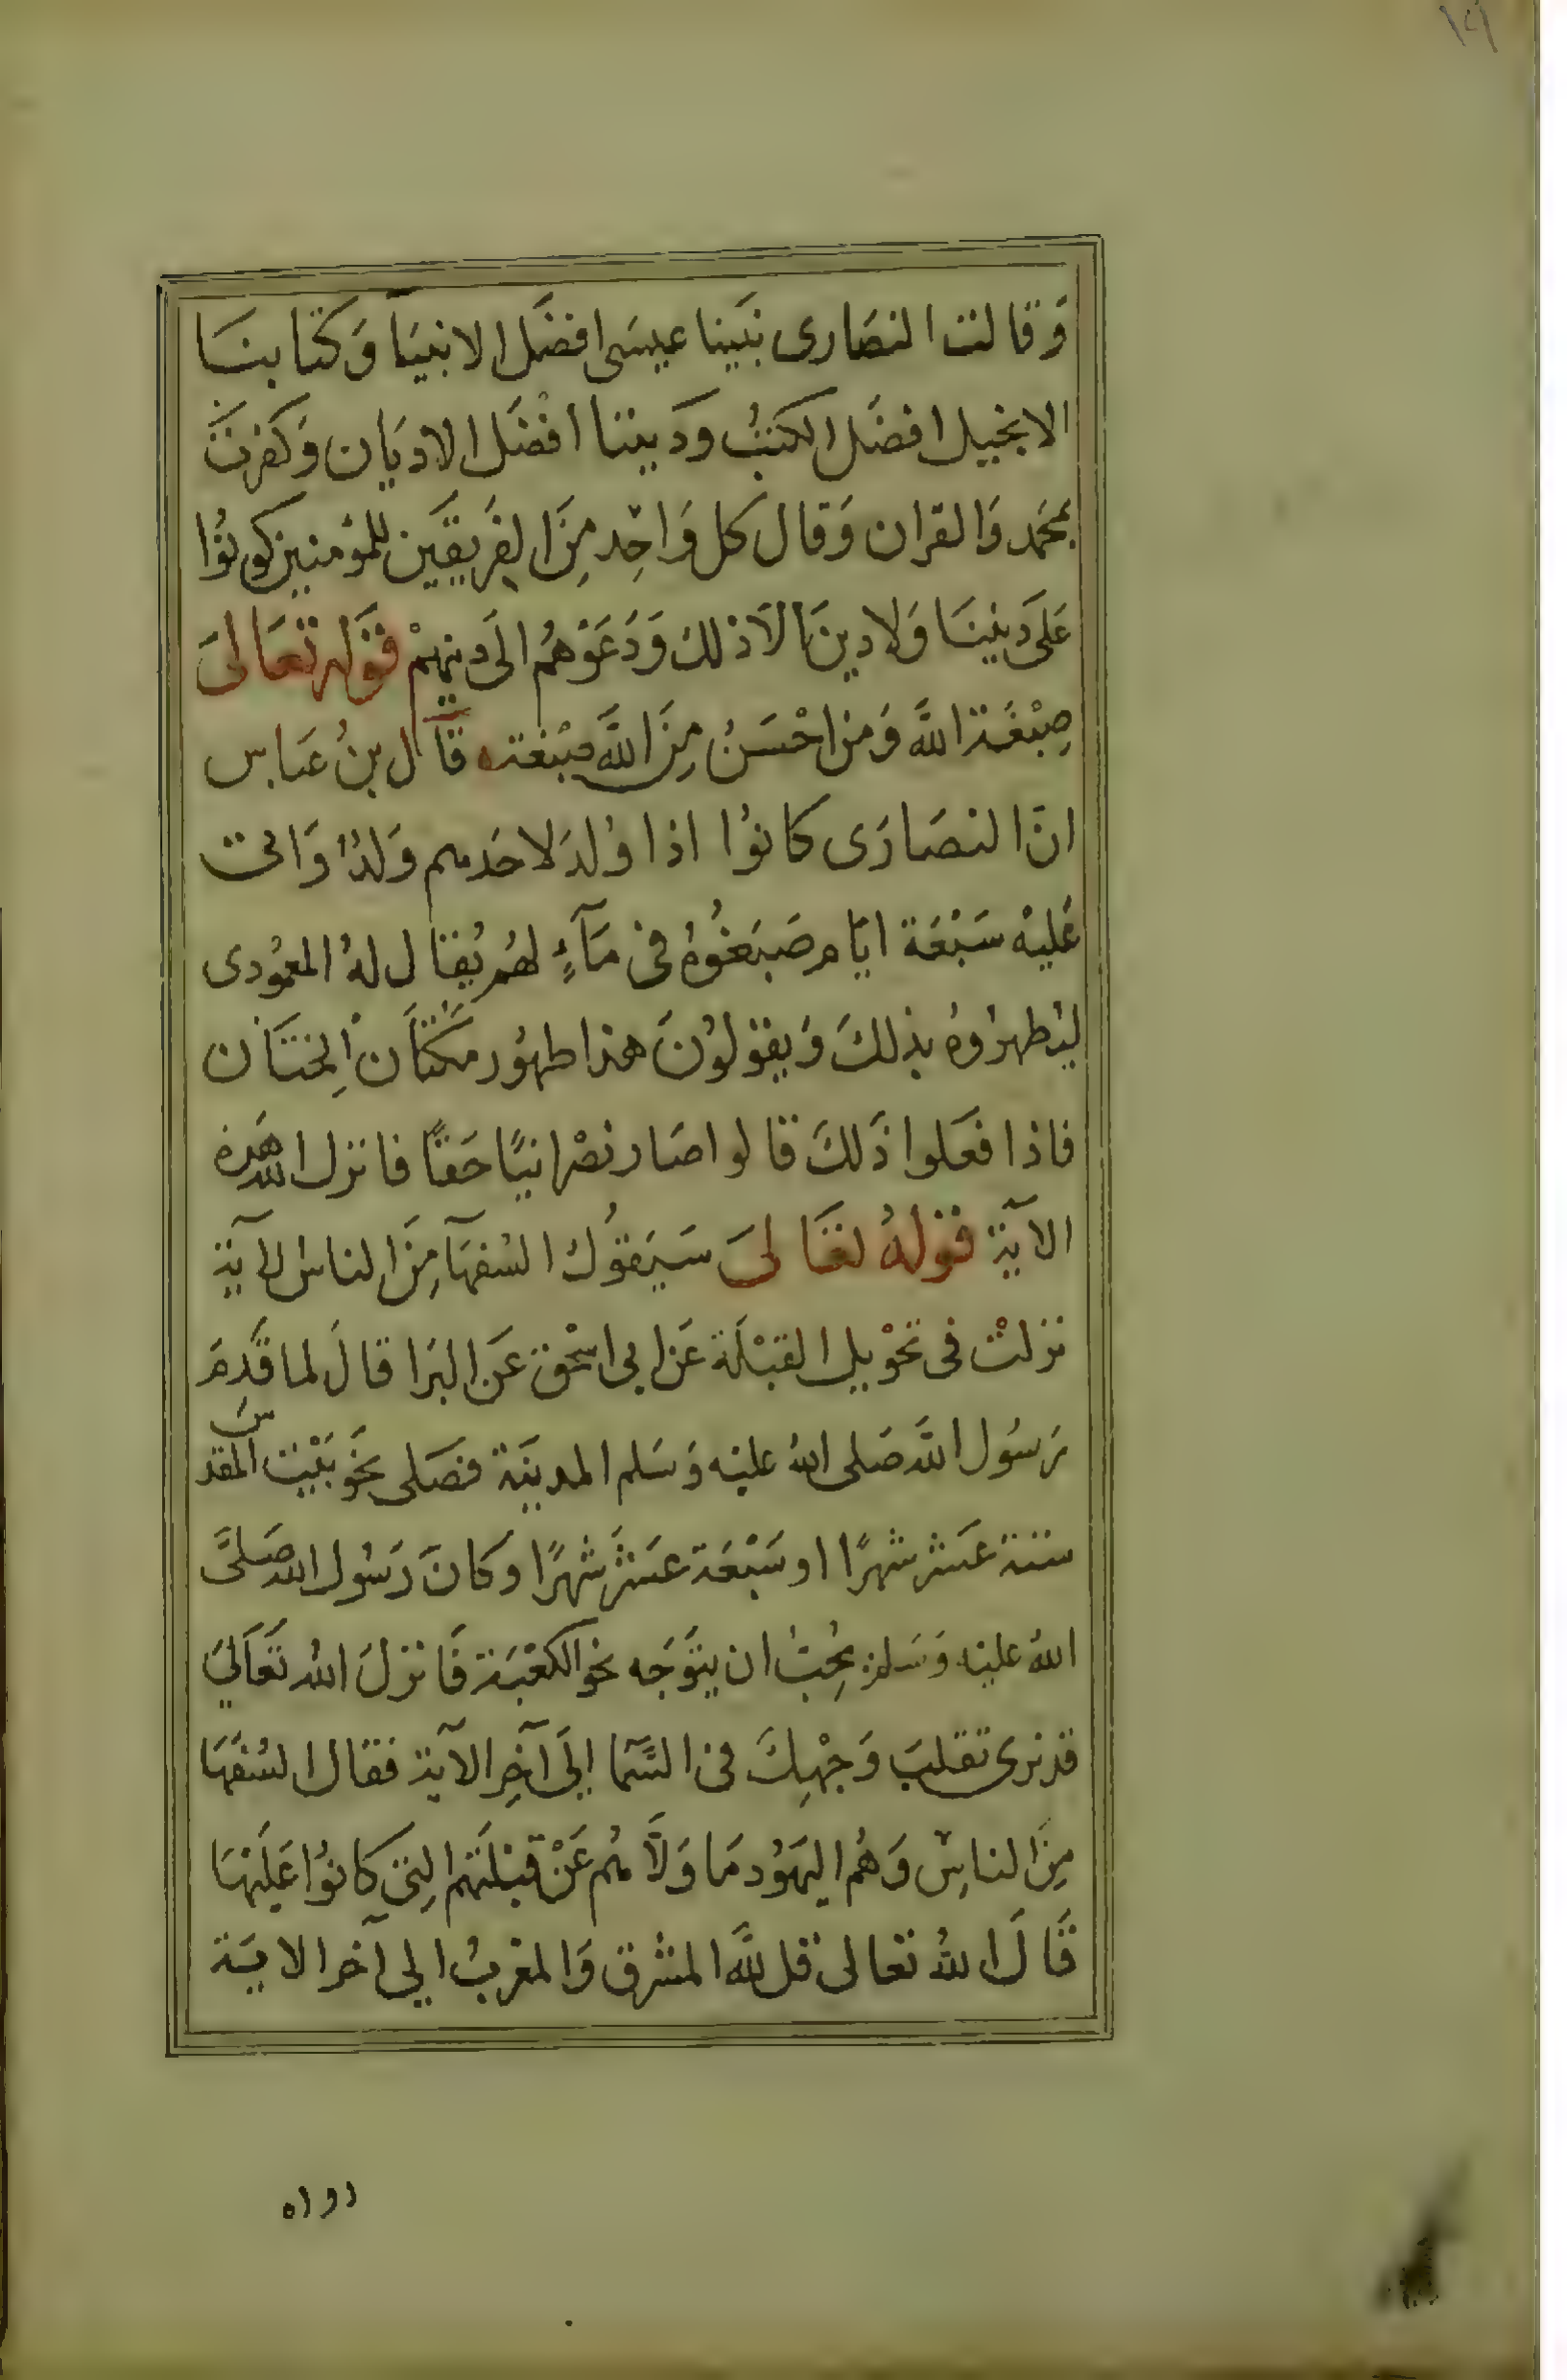 ١٩
وَقالت النصَارى نبَينا عيسَى افضَل الانبيَآ وَكتابنَا
الانجيل افضَل الكتبُ ودَيننا افْضَل الاديَان وَكفرتْ
بمحَمد وَالقران وَقال كل وَاحِد مِنَ الفَريقَين للمؤمنين كونوُا
عَلَى دَيننَا وَلا دين الاَّ ذلك وَدَعَوْهمُ الَى دينهمْ قوَله تعَالىَ
صِبْغَة اللَّه وَمن احْسَنُ مِنَ اللَّه صبْغة قآل بنُ عَباس
انَّ النصَارَى كانوُا اذا وُلدَ لاحَدهم وَلدٌ وَاتى
عَليْه سَبْعَة ايَّام صَبَغوُهُ فى مَآءٍ لهُم يُقال لهُ المعموُدى
ليُطهروُه بذلكَ وَيقولوُنَ هذا طهوُر مَكَان اِلختَان
فاذا فعَلوا ذَلكَ قالوا صَار نصْرانيًا حَقًا فانزل الله هَذه
الآية قولهُ تعَالىَ سَيَقوُل السُفهآ مِنَ الناس الآية
نزلتْ فى تحْويل القبْلَة عَن ابى اسْحق عَن البَرا قالَ لما قَدِمَ
رَسوُل اللَّه صَلى اللهُ عليْه وَسَلم المدينَة فصَلى نحْو بَيْت المقدس
ستة عَشر شهرًا او سَبْعَة عشَر شهْرًا وكانَ رَسوُل الله صَلىَّ
اللهُ عليْه وَسَلم يُحِبُ ان يتوَجَه نحو الكعْبَة فَانزلَ اللهُ تَعَالَي
قد نرى تقلبَ وَجْهِكَ فى السَّمآ اِلَى آخِر الآية فقال السُفَهَا
مِنَ الناسِ وَهُم اليَهوُد مَا وَلاَّهُم عَنْ قبْلَتهم التِي كانوُا عَليْهَا
قَالَ اللهُ تعالى قل للَّه المشرق وَالمغربُ الي آخر الايَة
رواه